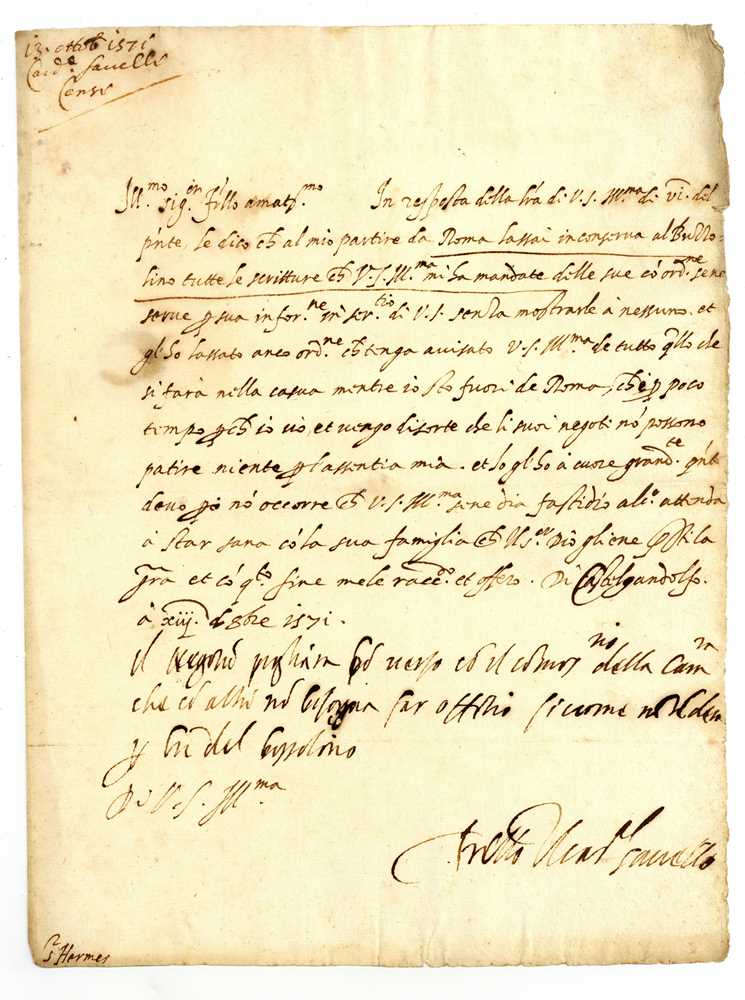 13. ottob 1571
Card.e Savelli
Ill.mo sig.or f.llo amatis.mo In resposta della l'ra di V.S. Ill.ma di vi. del
p'nte, le dico ch al mio partire da Roma lassai in conserva al Buzzo-
lino tutte le scritture ch V.S. Ill.ma mi ha mandate delle sue co' ord.ne se ne
serve p sua infor.ne in ser.tio di V.S. senza mostrarle à nessuno. et
gl'ho lassato anco ord.ne ch tenga avisato V.S. Ill.ma de tutto q'llo che
si farà nella causa mentre io sto fuori de Roma, ch è p poco
tempo p ch io vio, et vengo di sorte che li suoi negoti no' possono
patire niente p l'assentia mia. et io gl'ho à cuore grand.te q'nt
devo no' occorre ch V.S. Ill.ma se ne dia fastidio alc.o attenda
à star sana co' la sua famiglia ch N.S. Dio gliene la
gra et co' q.to fine me le racc.o et offero. Di Castelgandolfo.
à xiij. d 8bre 1571.
il verso il della Cam.ra
che altri no bisogna far offitio siccome
p del bossolino
Di V.S. Ill.ma
fretto Il Card.l Savello
s Hermes